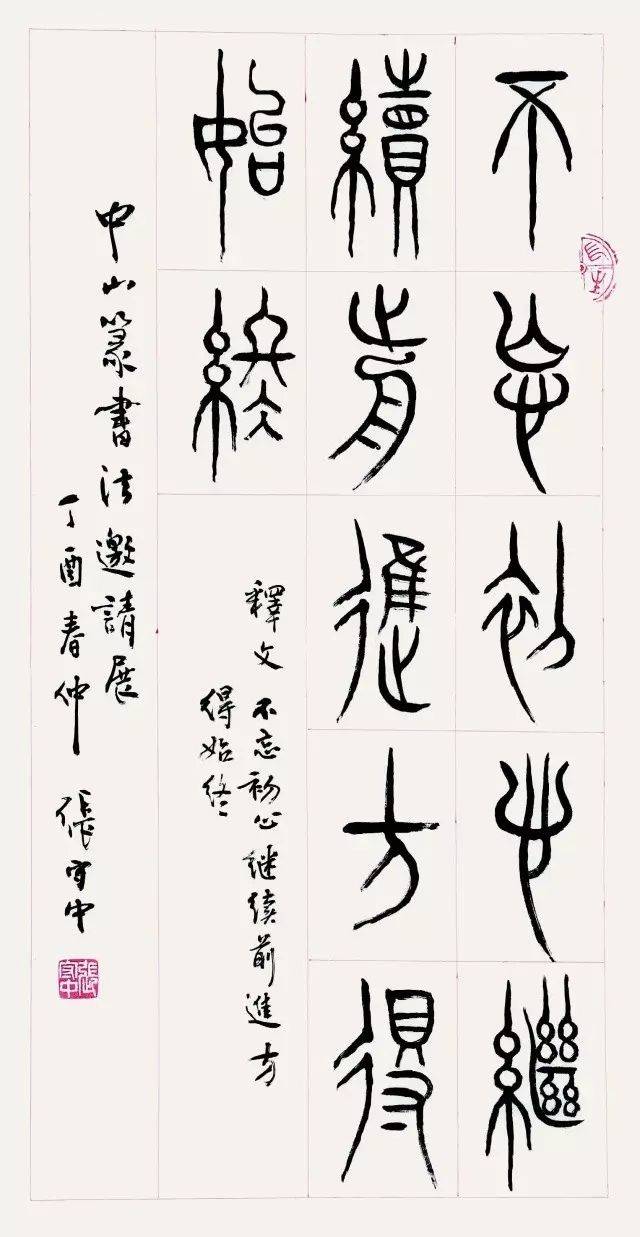 不忘初心繼
續前進方得
始終
釋文 不忘初心继续前進方
得始终
中山篆書法邀請展
丁酉春仲 張守中
張守中